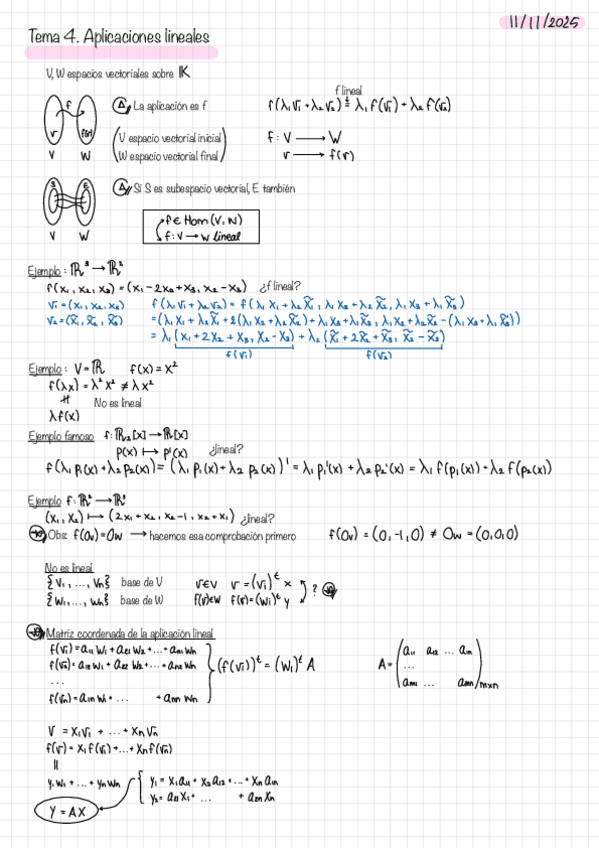 11/11/2025
Tema 4. Aplicaciones lineales
V, W espacios vectoriales sobre IK
La aplicación es f
f lineal
f(λ₁v₁ + λ₂v₂) = λ₁f(v₁) + λ₂f(v₂)
(V espacio vectorial inicial)
f : V → W
(W espacio vectorial final)
v → f(v)
V W
Si S es subespacio vectorial, E también
f ∈ Hom(V, W)
f : V → W lineal
V W
Ejemplo : ℝ³ → ℝ²
f(x₁, x₂, x₃) = (x₁ - 2x₂ + x₃, x₂ - x₃) ¿f lineal?
v₁ = (x₁, x₂, x₃) f(λ₁v₁ + λ₂v₂) = f(λ₁x₁ + λ₂x̃₁, λ₁x₂ + λ₂x̃₂, λ₁x₃ + λ₁x̃₃)
v₂ = (x̃₁, x̃₂, x̃₃) = (λ₁x₁ + λ₂x̃₁ + 2(λ₁x₂ + λ₂x̃₂) + λ₁x₃ + λ₁x̃₃, λ₁x₂ + λ₂x̃₂ - (λ₁x₃ + λ₁x̃₃))
= λ₁(x₁ + 2x₂ + x₃, x₂ - x₃) + λ₂(x̃₁ + 2x̃₂ + x̃₃, x̃₂ - x̃₃)
f(v₁) f(v₂)
Ejemplo : V = ℝ f(x) = x²
f(λx) = λ²x² ≠ λx²
No es lineal
λf(x)
Ejemplo famoso f: ℝ₂[x] → ℝ[x]
p(x) ↦ p'(x) ¿lineal?
f(λ₁p₁(x) + λ₂p₂(x)) = (λ₁p₁(x) + λ₂p₂(x))' = λ₁p₁'(x) + λ₂p₂'(x) = λ₁f(p₁(x)) + λ₂f(p₂(x))
Ejemplo f: ℝ² → ℝ³
(x₁, x₂) ↦ (2x₁ + x₂, x₂ - 1, x₂ + x₁) ¿lineal?
Obs: f(0v) = 0w → hacemos esa comprobación primero f(0v) = (0, -1, 0) ≠ 0w = (0,0,0)
No es lineal
{v₁, ..., vn} base de V v∈V v = (vi)ᵗ x
{w₁, ..., wn} base de W f(v)∈W f(v) = (wi)ᵗ y ?
Matriz coordenada de la aplicación lineal
f(v₁) = a₁₁w₁ + a₂₁w₂ + ... + am₁wn
f(v₂) = a₁₂w₁ + a₂₂w₂ + ... + am₂wn
(f(vi))ᵗ = (wi)ᵗ A
A = (a₁₁ a₁₂ ... a₁n
...
am₁ ... amn) mxn
...
f(vn) = a₁nw₁ + ... + amnwn
v = x₁v₁ + ... + xnvn
f(v) = x₁f(v₁) + ... + xnf(vn)
y₁w₁ + ... + ynwn
y₁ = x₁a₁₁ + x₂a₁₂ + ... + xna₁n
y₂ = a₂₁x₁ + ... + a₂nxn
Y = AX